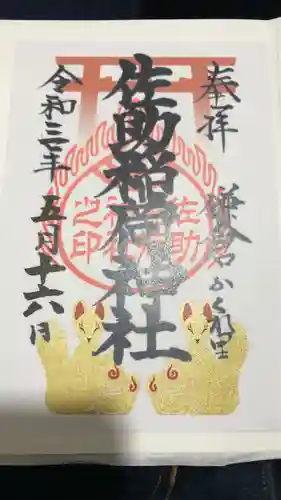 奉拝
鎌倉かくれ里
佐助稲荷神社
佐助
稲荷
神社
之印
令和三年五月十六日